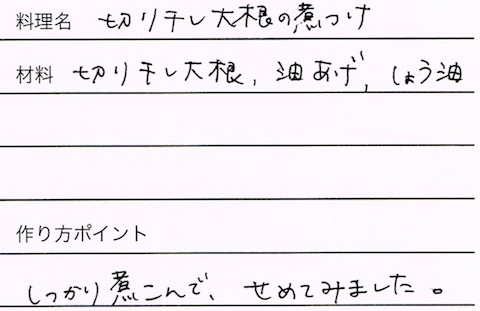 料理名 切り干し大根の煮つけ
材料 切り干し大根、油あげ、しょう油
作り方ポイント
しっかり煮こんで、せめてみました。